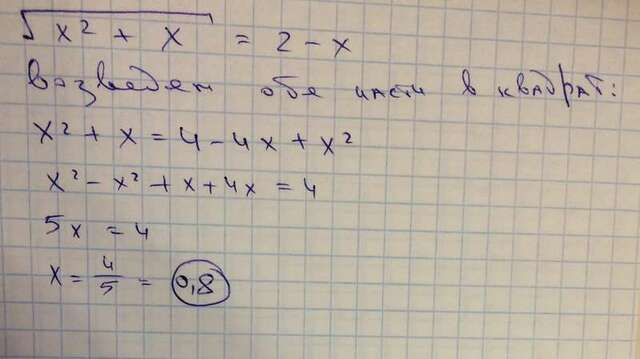 √(x² + x) = 2 - x
возведем обе части в квадрат:
x² + x = 4 - 4x + x²
x² - x² + x + 4x = 4
5x = 4
x = 4/5 = 0,8